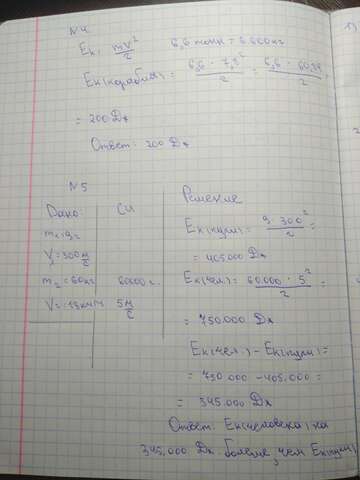 N4
Ек = mV²/2   6,6 тонн = 6.600 кг
Ек(корабля) = 6,6 · 7,8²/2 = 6,6 · 60,84/2
= 200 Дж
Ответ: 200 Дж
N5
Дано: СИ Решение
m₁ = 9 г
V₁ = 300 м/с
m₂ = 60 кг 60000 г
V = 18 км/ч 5 м/с
Ек(пули) = 9 · 300²/2 =
= 405000 Дж
Ек(чел.) = 60.000 · 5²/2 =
= 750.000 Дж
Ек(чел.) – Ек(пули) =
= 750.000 – 405.000 =
= 345.000 Дж
Ответ: Ек(человека) на
345.000 Дж больше, чем Ек(пули)